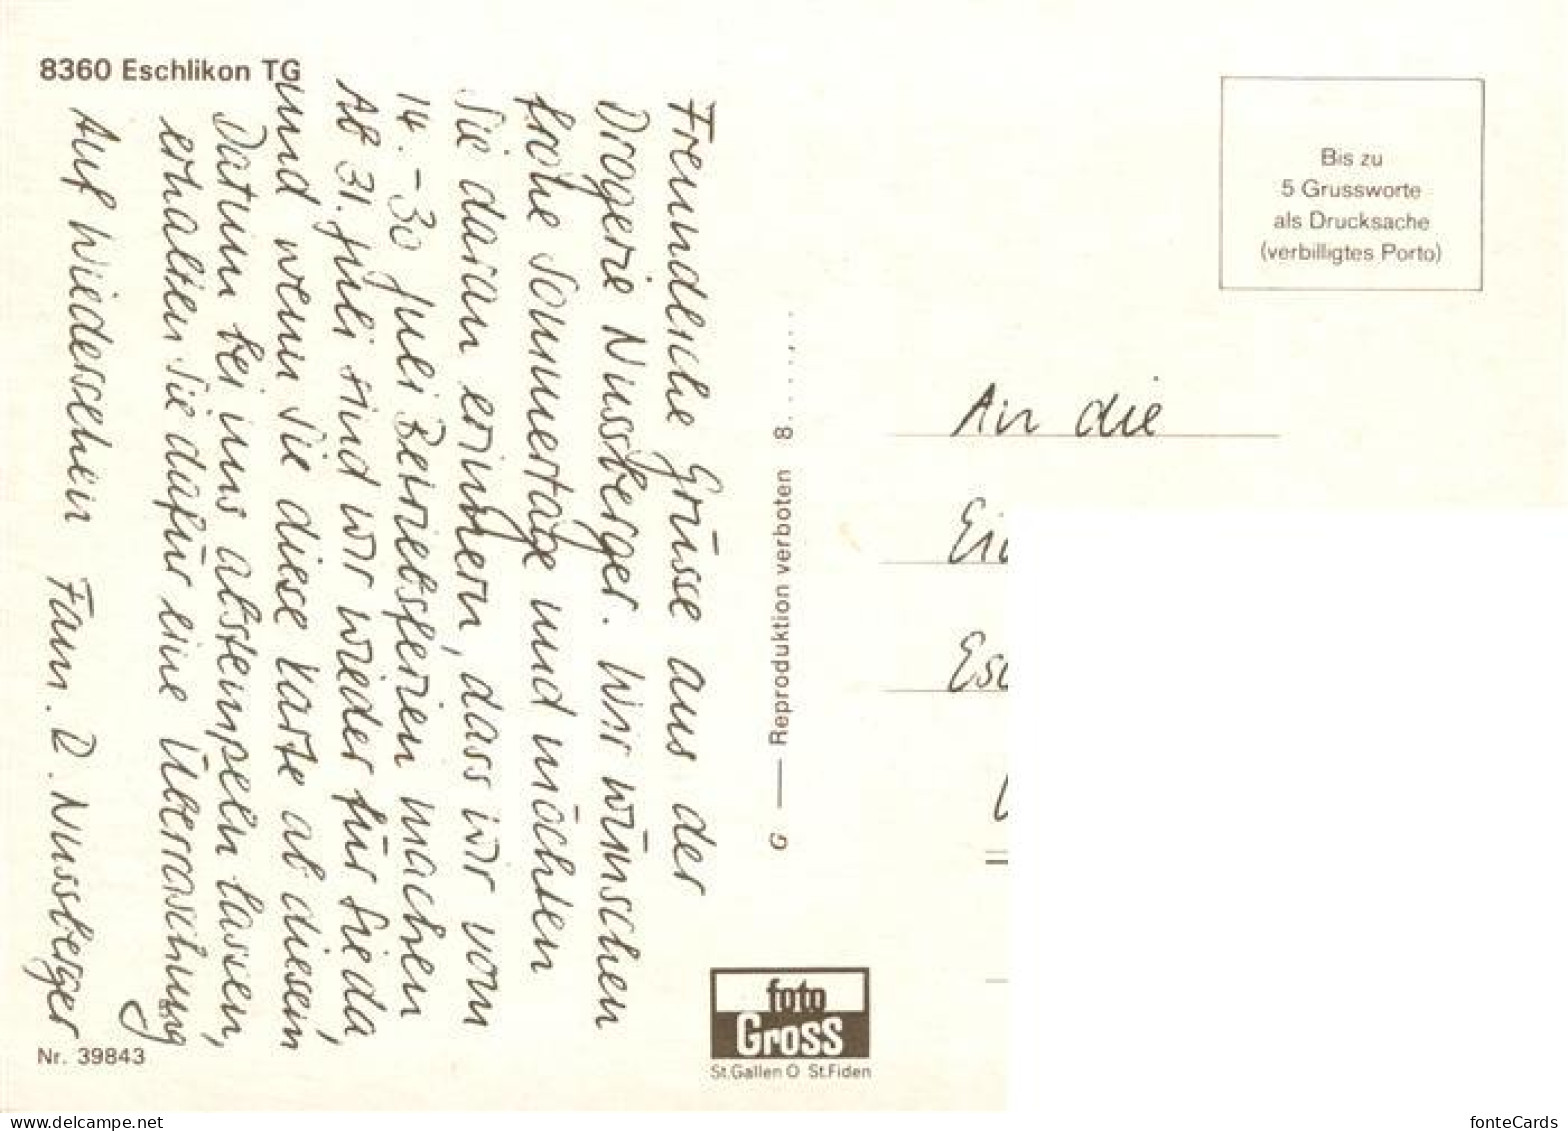 8360 Eschlikon TG
Freundliche Grüsse aus der
Drogerie Nussberger. Wir wünschen
frohe Sommertage und möchten
Sie daran erinnern, dass wir vom
14. - 30 Juli Betriebsferien machen
Ab 31. Juli sind wir wieder für Sie da,
und wenn Sie diese Karte ab diesem
Datum bei uns abstempeln lassen,
erhalten Sie dafür eine Überraschung
Auf Wiedersehen Fam. D. Nussberger
Nr. 39843
G — Reproduktion verboten 8.......
foto
Gross
St.Gallen O St.Fiden
Bis zu
5 Grussworte
als Drucksache
(verbilligtes Porto)
An die
delcampe.net
fonteCards